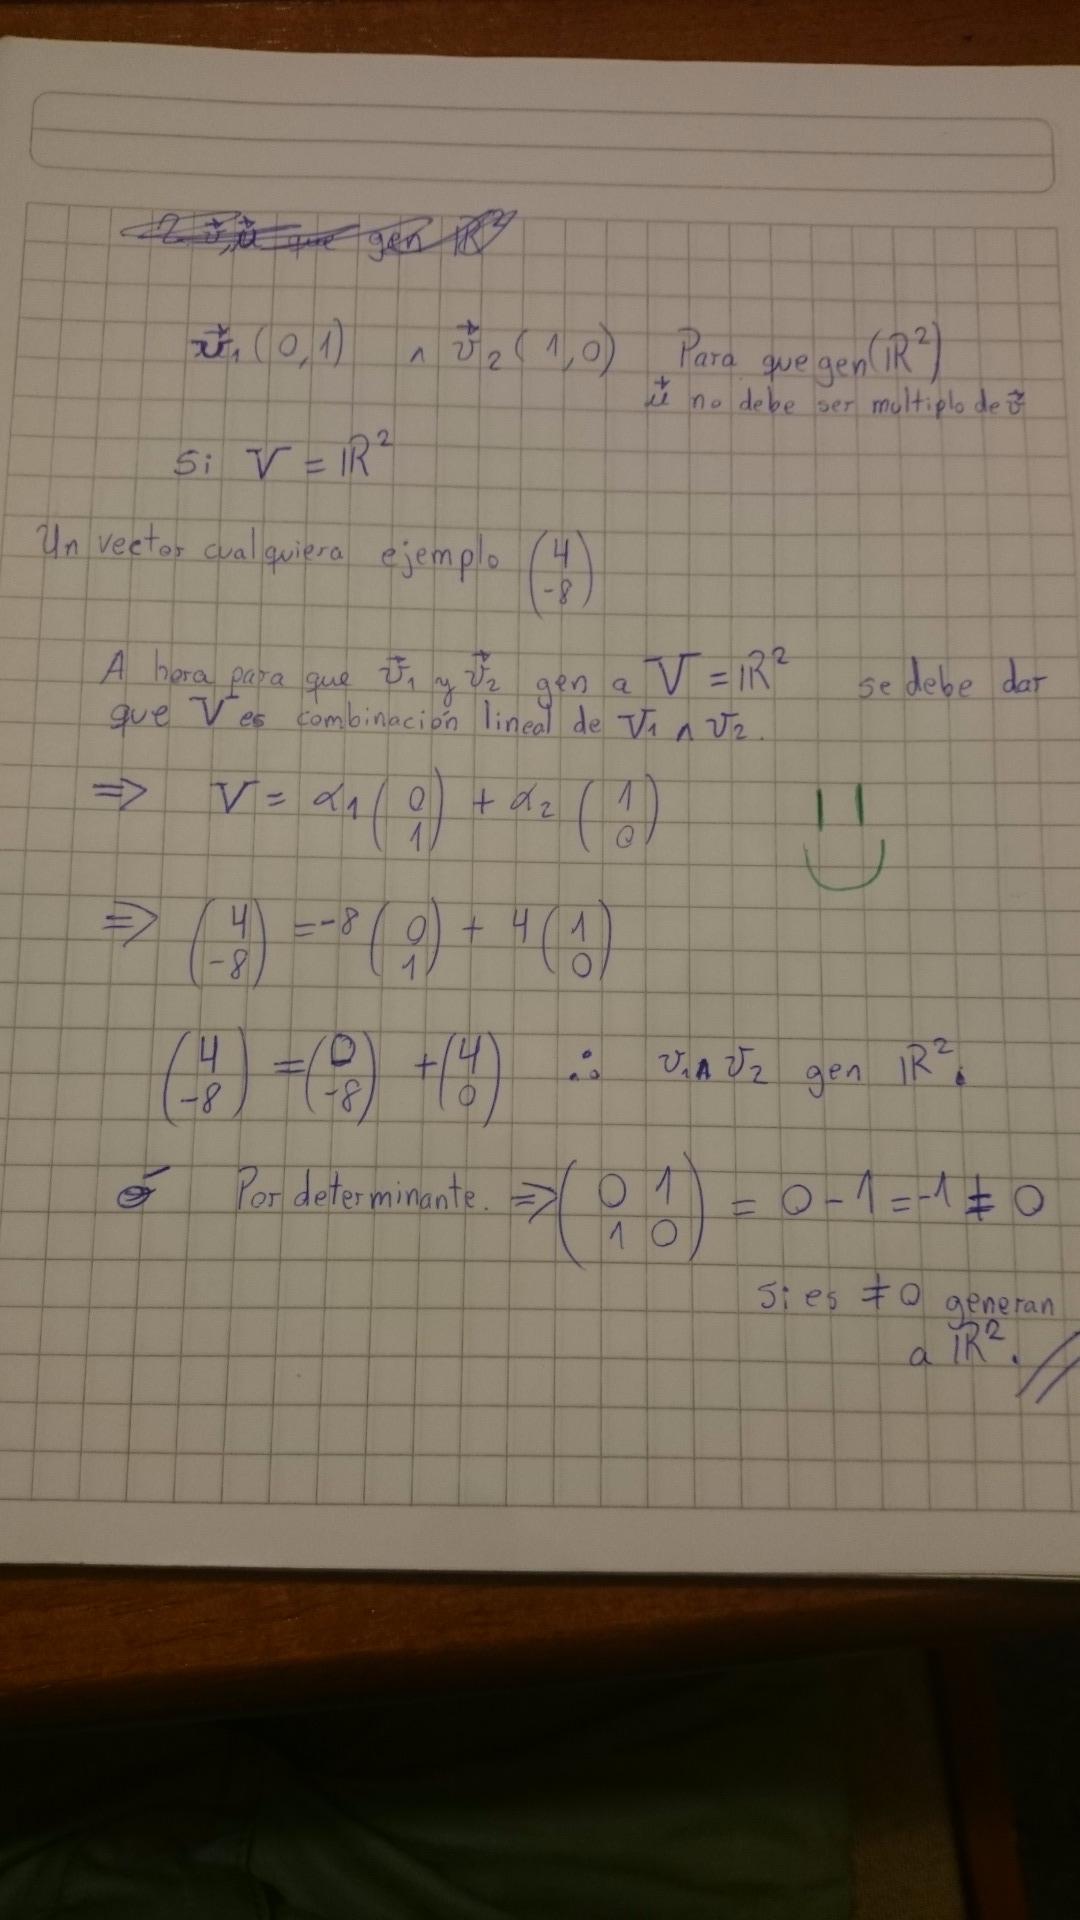 2 v⃗,u⃗ que gen ℝ²
v⃗₁(0,1) ∧ v⃗₂(1,0) Para que gen(ℝ²)
u⃗ no debe ser multiplo de v⃗
Si V = ℝ²
Un vector cualquiera ejemplo (4
-8)
A hora para que v⃗₁ y v⃗₂ gen a V = ℝ² se debe dar
que V es combinación lineal de V₁ ∧ V₂.
⇒ V = α₁(0
1) + α₂(1
0)
⇒ (4
-8) = -8(0
1) + 4(1
0)
(4
-8) = (0
-8) + (4
0) ∴ v₁ ∧ v₂ gen ℝ².
ó Por determinante. ⇒ (0 1
1 0) = 0 - 1 = -1 ≠ 0
Si es ≠ 0 generan
a ℝ².